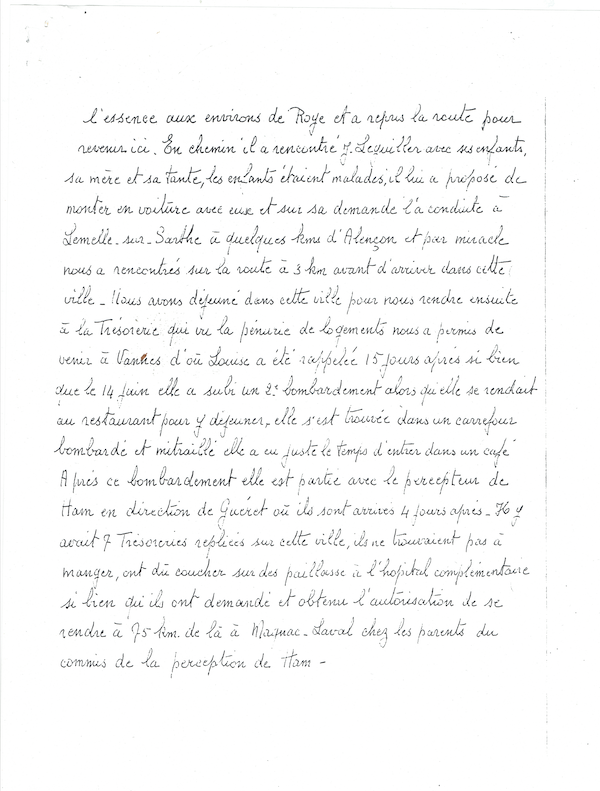 l'essence aux environs de Roye et a repris la route pour
revenir ici. En chemin il a rencontré J. Lequiller avec ses enfants,
sa mère et sa tante, les enfants étaient malades, il lui a proposé de
monter en voiture avec eux et sur sa demande l'a conduite à
Lemelle-sur-Sarthe à quelques kms d'Alençon et par miracle
nous a rencontrés sur la route à 3 km avant d'arriver dans cette
ville - Nous avons déjeuné dans cette ville pour nous rendre ensuite
à la Trésorerie qui vu la pénurie de logements nous a permis de
venir à Vannes d'où Louise a été rappelée 15 jours après si bien
que le 14 juin elle a subi un 2e bombardement alors qu'elle se rendait
au restaurant pour y déjeuner, elle s'est trouvée dans un carrefour
bombardé et mitraillé elle a eu juste le temps d'entrer dans un café
Après ce bombardement elle est partie avec le percepteur de
Ham en direction de Guéret où ils sont arrivés 4 jours après - Il y
avait 7 Trésoreries repliées sur cette ville, ils ne trouvaient pas à
manger, ont dû coucher sur des paillasse à l'hopital complémentaire
si bien qu'ils ont demandé et obtenu l'autorisation de se
rendre à 75 km. de là à Magnac-Laval chez les parents du
commis de la perception de Ham -